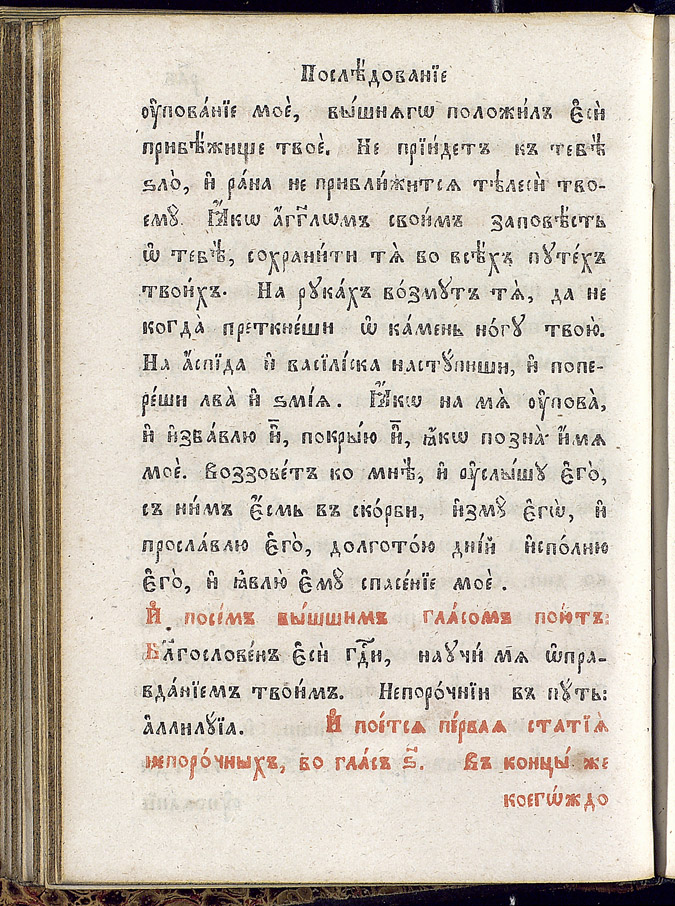 Послѣ́дованїе
ᲂу҆пова́нїе моѐ, вы́шнѧгѡ положи́лъ є҆сѝ
прибѣ́жище твоѐ. Не прїи́детъ къ тебѣ̀
ѕло̀, и҆ ра́на не прибли́житсѧ тѣлесѝ тво-
емꙋ̀. Ꙗ҆́кѡ а҆́гг҃лѡмъ свои́мъ заповѣ́сть
ѡ҆ тебѣ̀, сохрани́ти тѧ̀ во всѣ́хъ пꙋте́хъ
твои́хъ. На рꙋка́хъ во́змꙋтъ тѧ̀, да не
когда̀ преткне́ши ѡ҆ ка́мень но́гꙋ твою̀.
На а҆́спїда и҆ васїлі́ска настꙋ́пиши, и҆ попе-
ре́ши лва̀ и҆ ѕмі́ѧ. Ꙗ҆́кѡ на мѧ̀ ᲂу҆пова̀,
и҆ и҆зба́влю и҆̀, покры́ю и҆̀, ꙗ҆́кѡ позна̀ и҆́мѧ
моѐ. Воззове́тъ ко мнѣ̀, и҆ ᲂу҆слы́шꙋ є҆го̀,
съ ни́мъ є҆́смь въ ско́рби, и҆змꙋ̀ є҆гѡ̀, и҆
просла́влю є҆го̀, долгото́ю дні́й и҆спо́лню
є҆го̀, и҆ ꙗ҆влю̀ є҆мꙋ̀ спасе́нїе моѐ.
И҆ посе́мъ вы́шшимъ гла́сомъ пою́тъ:
Бл҃гослове́нъ є҆сѝ гдⷭ҇и, наꙋчи́ мѧ ѡ҆пра-
вда́нїемъ твои́мъ. Непоро́чнїи въ пꙋ́ть:
а҆ллилꙋ́їа. И҆ пое́тсѧ пе́рваѧ статїѧ̀
непоро́чныхъ, во гла́съ є҃. Въ концы́ же
коегѡ́ждо